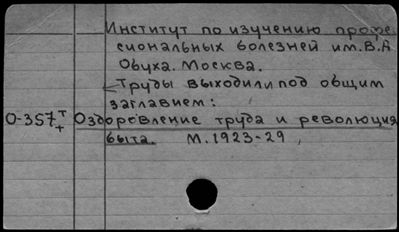 Институт по изучению профе
сиональных болезней им. В.А
Обуха. Москва.
Труды выходили под общим
заглавием:
О-357 т/+ Оздоровление труда и революция
быта. М. 1923-29,